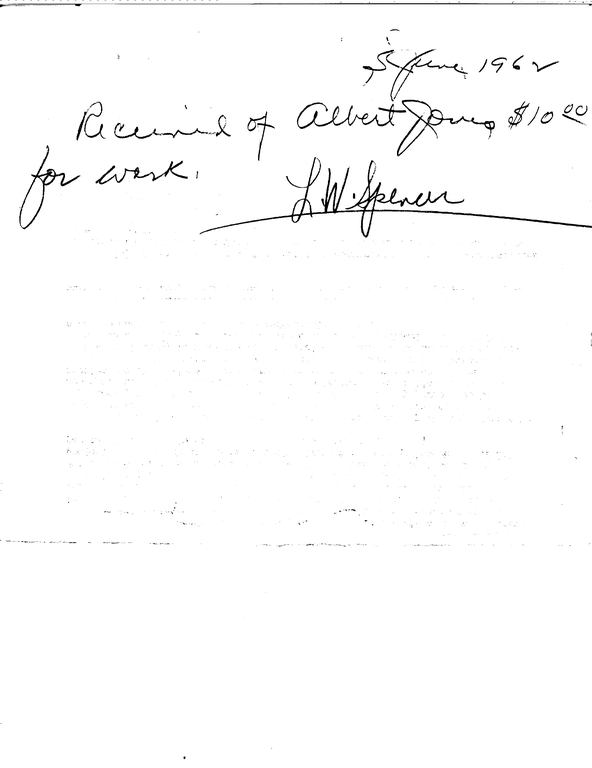 5 June 1962
Received of Albert Jones $10.00
for work.
L W. Spencer